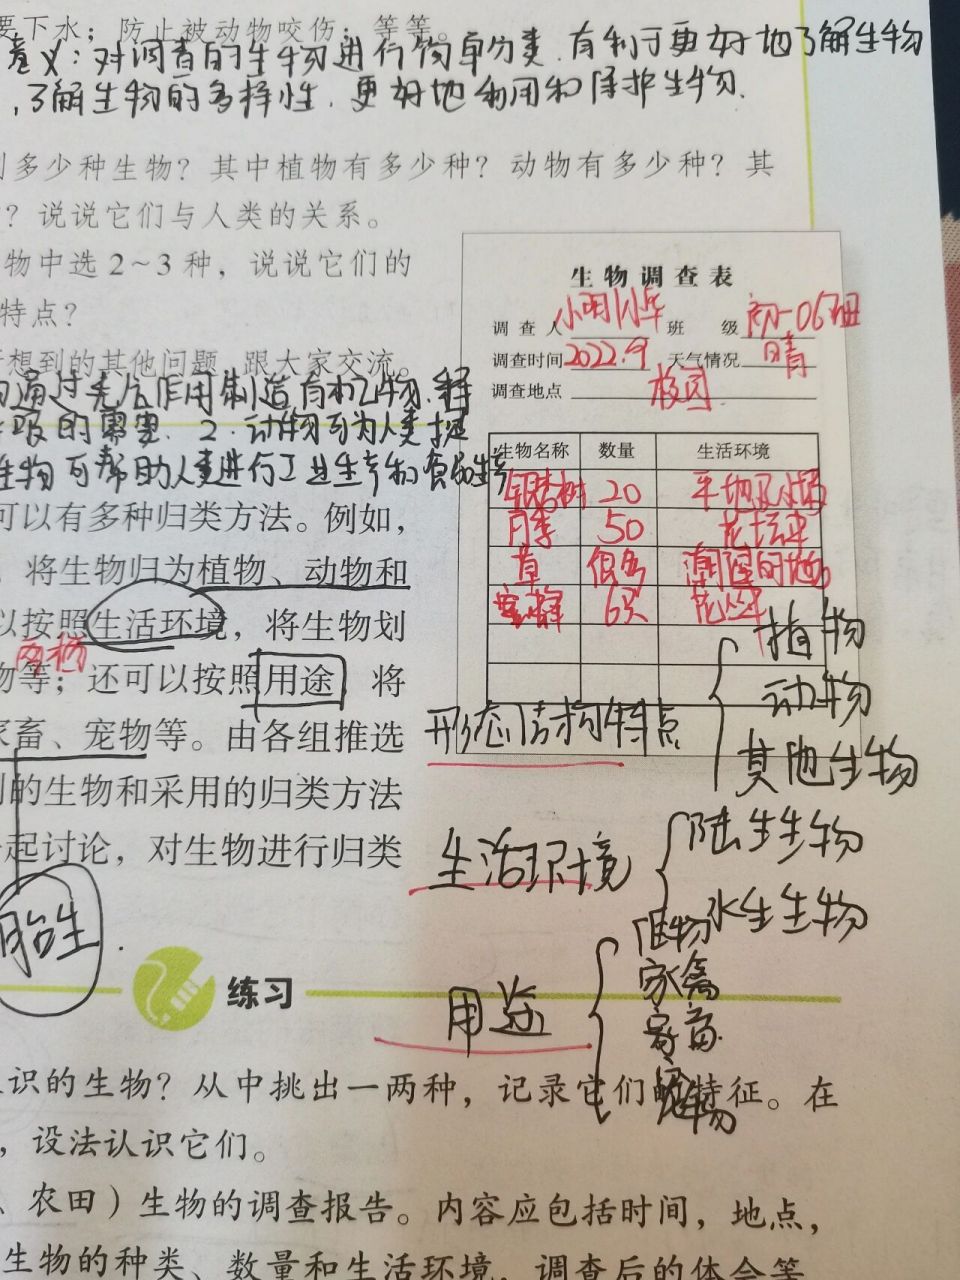 要下水；防止被动物咬伤；等等。
意义：对调查的生物进行简单分类.有利于更好地了解生物
,了解生物的多样性.更好地利用和保护生物.
到多少种生物？其中植物有多少种？动物有多少种？其
？说说它们与人类的关系。
物中选2～3种，说说它们的
特点？
想到的其他问题，跟大家交流。
通过光合作用制造有机物.释
吸的需要.2.动物可为人类提
生物可帮助人类进行工业生产和食品生产
可以有多种归类方法。例如，
将生物归为植物、动物和
以按照生活环境，将生物划
两栖
物等；还可以按照用途，将
家畜、宠物等。由各组推选
到的生物和采用的归类方法
起讨论，对生物进行归类
胎生
生物调查表
调查人 小明 小华 班级 初一06班
调查时间 2022.9 天气情况 晴
调查地点 校园
生物名称 数量 生活环境
银杏树 20 平地及广场
月季 50 花坛中
草 很多 潮湿的地
蜜蜂 6只 花丛中
形态结构特点
植物
动物
其他生物
生活环境
陆生生物
水生生物
用途
作物
家禽
家畜
宠物
练习
识的生物？从中挑出一两种，记录它们的特征。在
，设法认识它们。
、农田）生物的调查报告。内容应包括时间，地点，
生物的种类、数量和生活环境，调查后的体会等